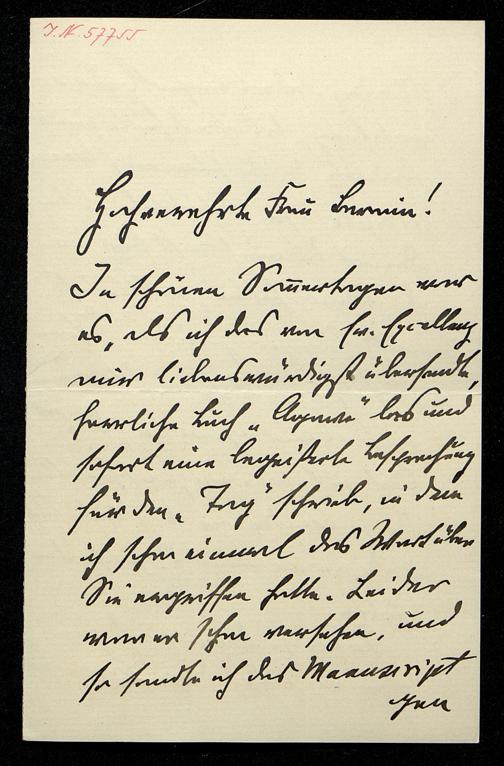 I.N. 57755
Hochverehrte Frau Baronin!
In schönen Sommertagen war
es, als ich das von Ew. Excellenz
mir liebenswürdigst übersandte,
herrliche Buch „Agave" las und
sofort eine begeisterte Besprechung
für den „Tag" schrieb, in dem
ich schon einmal das Wort über
Sie ergriffen hatte. Leider
war er schon versehen, und
so sandte ich das Manuscript